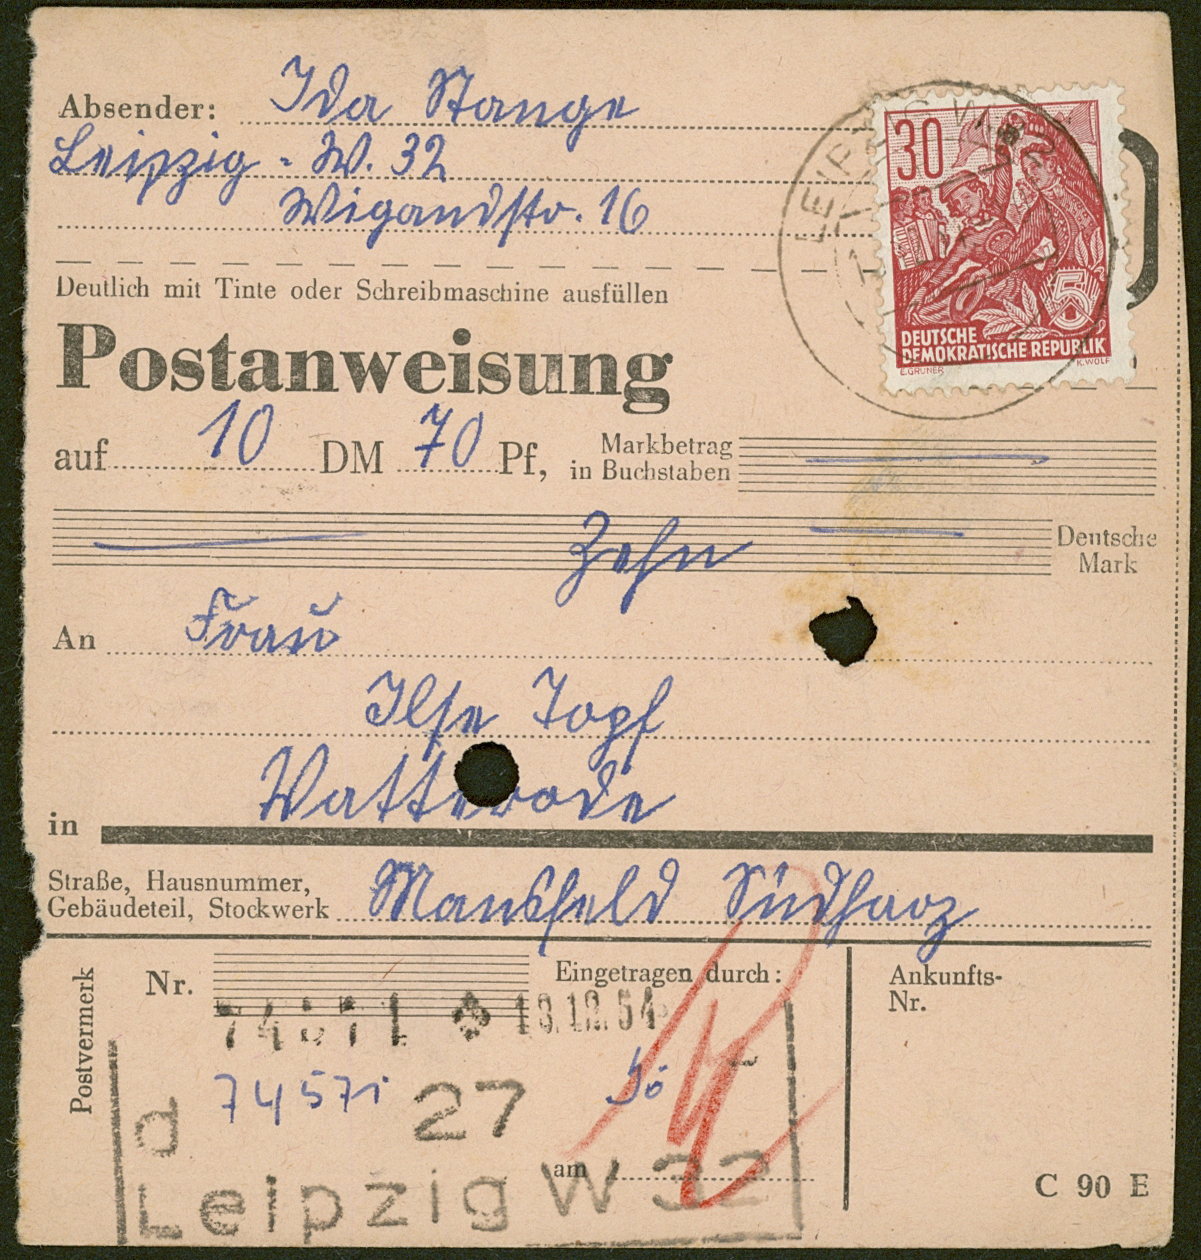 Absender: Ida Stange
Leipzig - W. 32
Wigandstr. 16
LEIPZIG W
30
5
DEUTSCHE
DEMOKRATISCHE REPUBLIK
E.GRUNER K.WOLF
Deutlich mit Tinte oder Schreibmaschine ausfüllen
Postanweisung
auf 10 DM 70 Pf, Markbetrag
in Buchstaben
Zehn
Deutsche
Mark
An Frau
Ilse Topf
Watterode
in
Straße, Hausnummer,
Gebäudeteil, Stockwerk Mansfeld Südharz
Postvermerk
Nr.
Eingetragen durch:
Ankunfts-
Nr.
74571
74571
27
d
am
Leipzig W 32
C 90 E